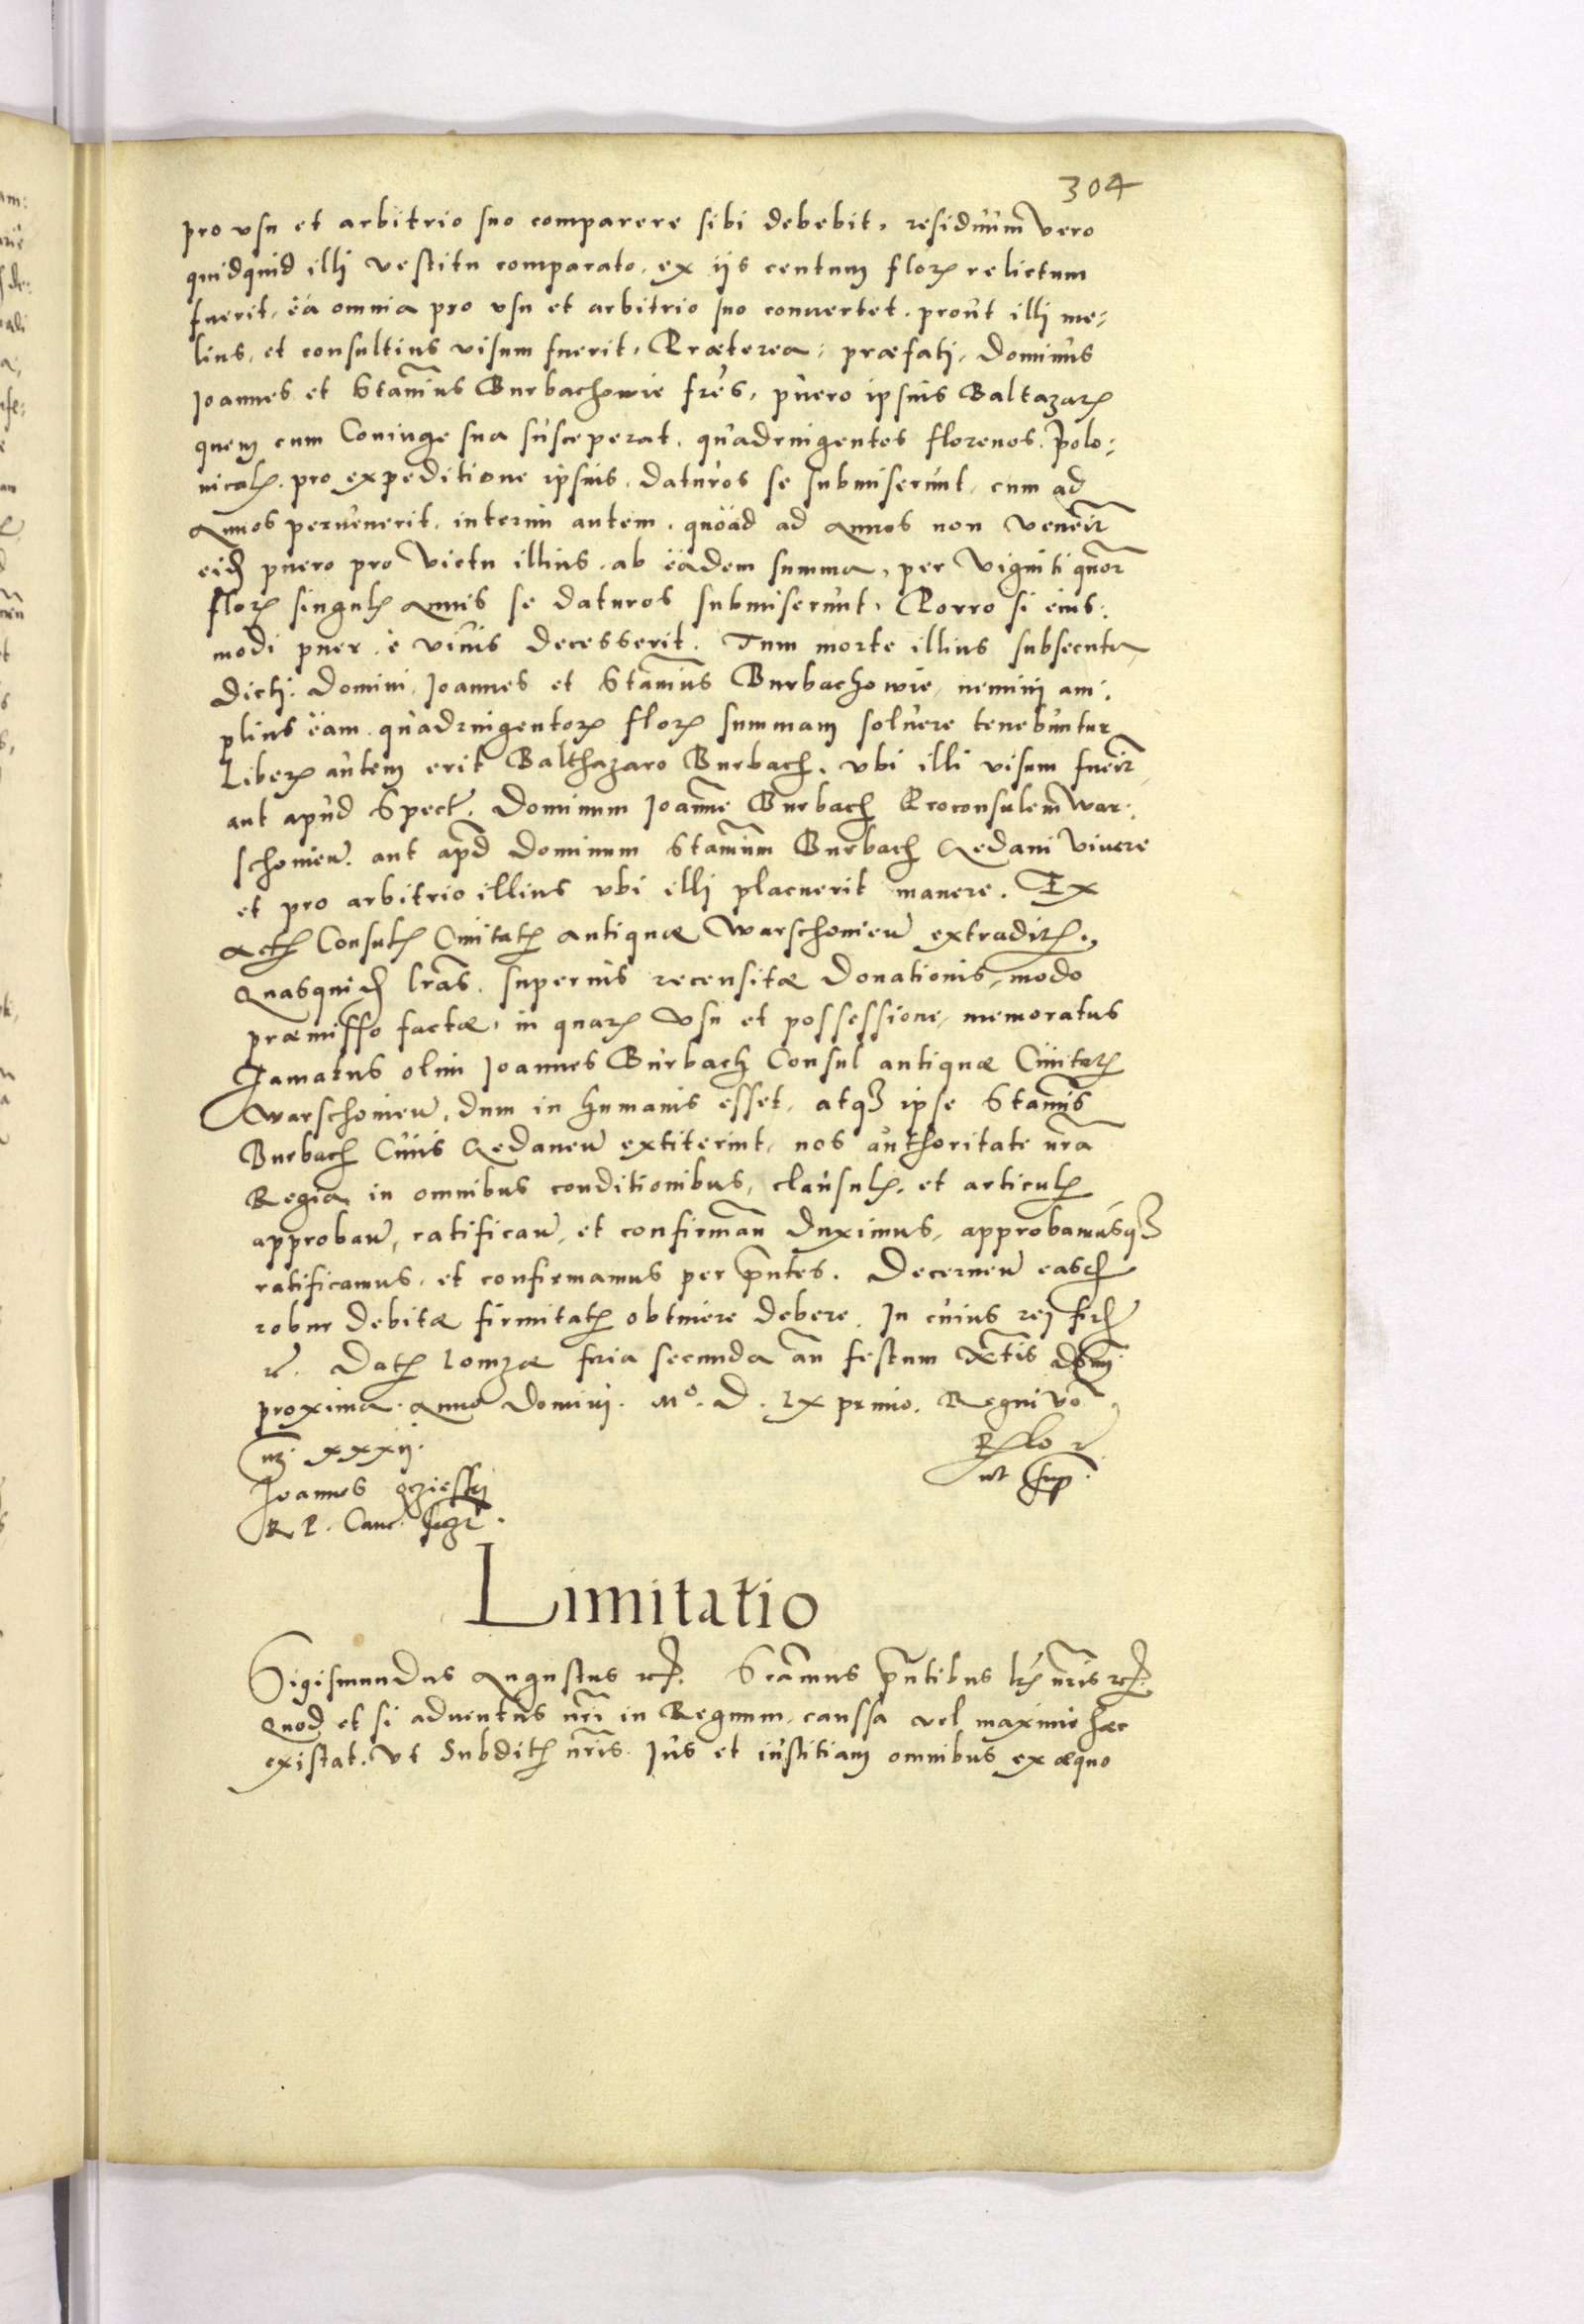 304
pro vsu et arbitrio suo comparere sibi debebit, residuum vero
quidquid illi vestitu comparato, ex iis centum floꝝ relictum
fuerit, ëa omnia pro vsu et arbitrio suo conuertet, prout illi me:
lius, et consultius visum fuerit, Præterea, præfati, Dominus
Joannes et Staniūs Burbachowie frēs, puero ipsius Baltazarꝭ
quem cum Coniuge sua susceperat, quadringentos florenos, Polo:
nicalꝭ, pro expeditione ipsius, daturos se submiserunt, cum ad
Annos peruenerit, interim autem, quöad ad Annos non veneir̄
eidꝫ puero pro victu illius, ab ëadem summa, per viginti quor̄
floꝝ singulꝭ Annis se daturos submiserunt, Porro si eius:
modi puer è viuis decesserit. Tum morte illius subsecuta
dicti. Domini, Joannes et Staniūs Burbachowie, nemini am:
plius ëam quadringentoꝝ floꝝ summam soluere tenebuntur
Liberꝫ autem erit Balthazaro Burbach, vbi illi visum fueir̄
aut apud Spect. Dominum Joannē Burbach Proconsulem War:
schouien̄. aut apd̄ Dominum Staniūm Burbach Gedani viuere
et pro arbitrio illius vbi illi placuerit manere. Ex
Actꝭ Consulꝭ Ciuitatꝭ antiquæ Warschouien̄ extraditꝭ,
Quasquidꝫ lrās, superius recensitæ Donationis, modo
præmisso factæ, in quaꝝ vsu et possessione, memoratus
Famatus olim Joannes Burbach Consul antiquæ Ciuitatꝭ
Warschouien̄, dum in humanis esset, atqꝫ ipse Stanīs
Burbach Ciuis Gedanen̄ extiterint, nos authoritate nr̄a
Regia in omnibus conditionibus, clausulꝭ, et articulꝭ
approban̄, ratifican̄, et confirman̄ duximus, approbamusqꝫ
ratificamus, et confirmamus per pn̄tes. Decernen̄ easdꝫ
robur debitæ firmitatꝭ obtinere debere. In cuius rei fidꝫ
&. Datꝭ Lomzæ fria secunda an̄ festum
proxima. Anno Domini. Mº. D. LX primo. Regni vō
nr̄i. xxxij.
ut sup.
Joannes
R P. Canc. segr̄.
Limitatio
Sigismundus Augustus &c. Significamus pn̄tibus lrꝭ nr̄is &c.
Quod et si aduentus nr̄i in Regnum, caussa vel maxime hæc
existat, vt Subditꝭ nr̄is Jus et iustitiam omnibus ex æquo